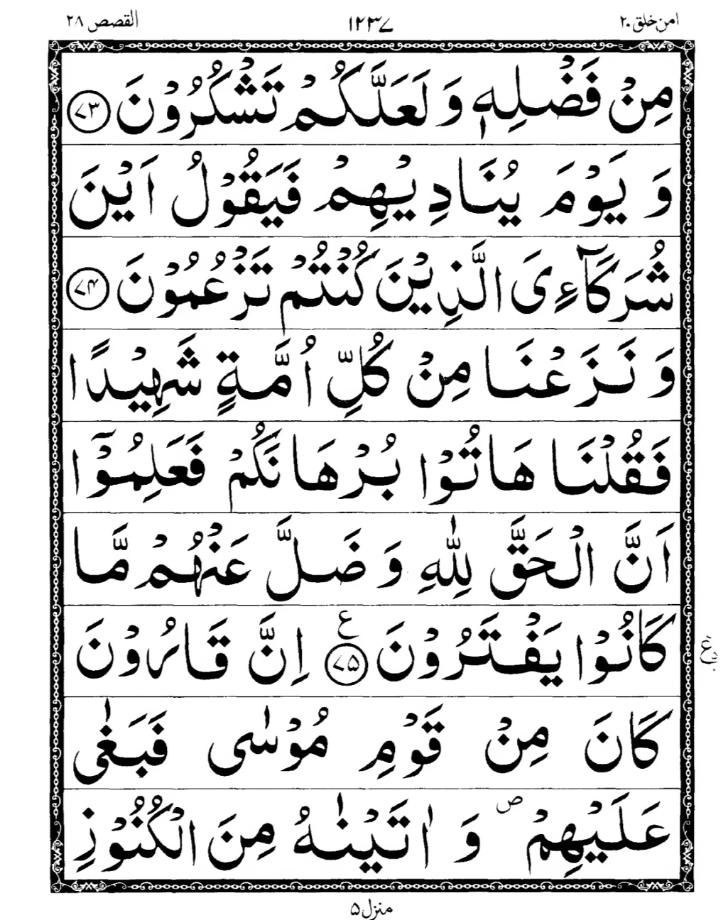 امن خلق ۲۰ ۱۲۳۷ القصص ۲۸
مِنْ فَضْلِهٖ وَ لَعَلَّكُمْ تَشْكُرُوْنَ ﴿۷۳﴾
وَ يَوْمَ يُنَادِيْهِمْ فَيَقُوْلُ اَيْنَ
شُرَكَآءِیَ الَّذِيْنَ كُنْتُمْ تَزْعُمُوْنَ ﴿۷۴﴾
وَ نَزَعْنَا مِنْ كُلِّ اُمَّةٍ شَهِيْدًا
فَقُلْنَا هَاتُوْا بُرْهَانَكُمْ فَعَلِمُوْۤا
اَنَّ الْحَقَّ لِلّٰهِ وَ ضَلَّ عَنْهُمْ مَّا
كَانُوْا يَفْتَرُوْنَ ﴿۷۵﴾ ع اِنَّ قَارُوْنَ
كَانَ مِنْ قَوْمِ مُوْسٰی فَبَغٰی
عَلَيْهِمْ ص وَ اٰتَيْنٰهُ مِنَ الْكُنُوْزِ
منزل ۵